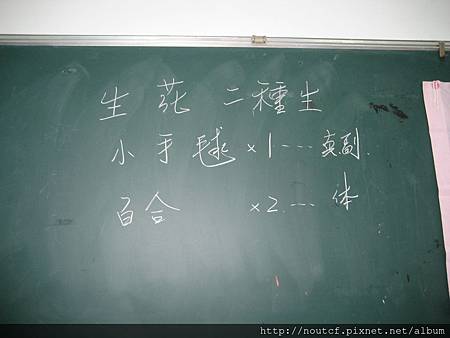 生花 二種生
小手毬 ×1 … 真副.
百合 ×2 … 体
http://noutcf.pixnet.net/album